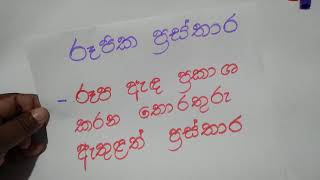 රූපික ප්‍රස්තාර
- රූප ඇඳ ප්‍රකාශ
කරන තොරතුරු
ඇතුළත් ප්‍රස්තාර